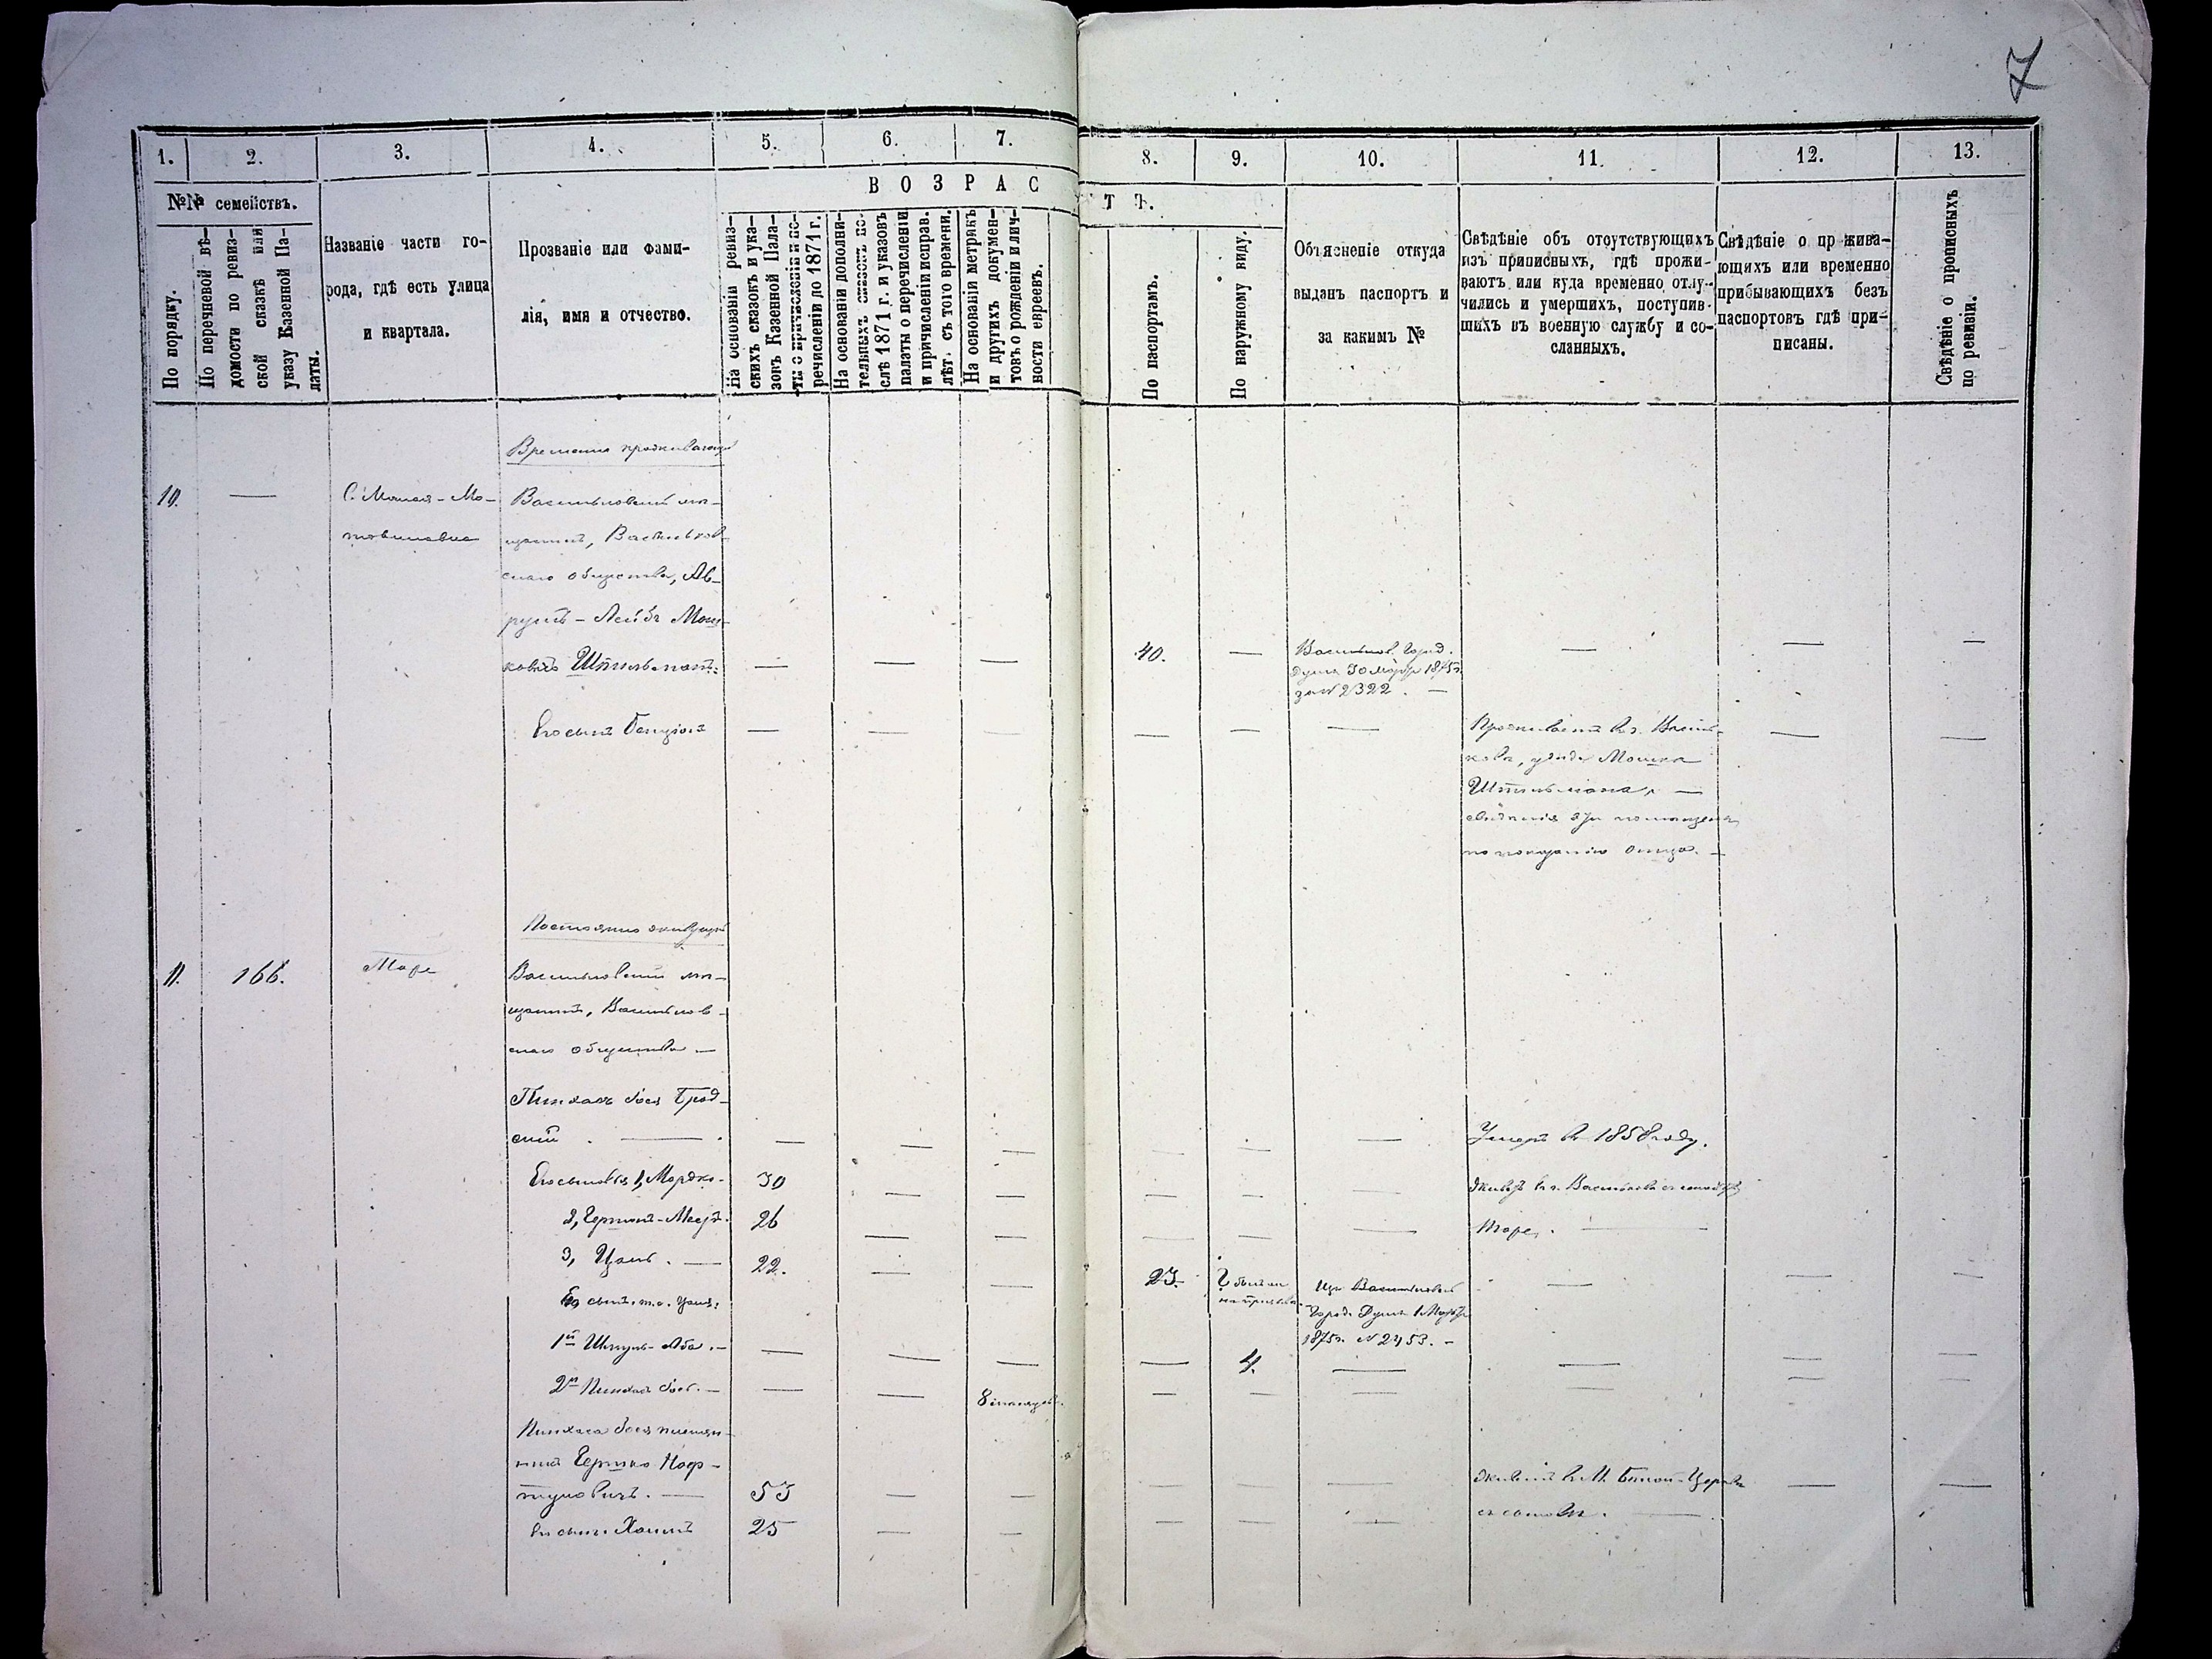 7
1. 2. 3. 4. 5. 6. 7. 8. 9. 10. 11. 12. 13.
№№ семействъ.
По порядку.
По перечневой вѣ-
домости по ревиз-
ской сказкѣ или
указу Казенной Па-
латы.
Названіе части го-
рода, гдѣ есть улица
и квартала.
Прозваніе или фами-
лія, имя и отчество.
ВОЗРАС
ТЪ.
На основаніи ревиз-
скихъ сказокъ и ука-
зовъ Казенной Пала-
ты о причисленіи и пе-
речисленіи до 1871 г.
На основаніи дополни-
тельныхъ списковъ по-
слѣ 1871 г. и указовъ
палаты о перечисленіи
и причисленіи исправ.
лѣт. съ того времени.
На основаніи метрикъ
и другихъ докумен-
товъ о рожденіи и лич-
ности евреевъ.
По паспортамъ.
По наружному виду.
Объясненіе откуда
выданъ паспортъ и
за какимъ №
Свѣдѣніе объ отсутствующихъ
изъ приписныхъ, гдѣ прожи-
ваютъ или куда временно отлу-
чились и умершихъ, поступив-
шихъ въ военную службу и со-
сланныхъ.
Свѣдѣніе о прожива-
ющихъ или временно
прибывающихъ безъ
паспортовъ гдѣ при-
писаны.
Свѣдѣніе о прописныхъ
по ревизіи.
Временно проживающіе
10. — С. Малая-Мо-
товиловка
Васильковскій мѣ-
щанинъ, Васильков-
скаго общества, Ав-
румъ-Лейбъ Мош-
ковъ Штильманъ. — — — 40. — Васильков. Город. — — —
Думы 30 1875г.
за № 2322. —
Его сынъ Бенціонъ — — — — — — Проживаетъ въ г. Василь- — —
ковѣ, у дѣда Мошка
Штильмана, —
свѣдѣнія эти
по показанію отца. —
Постоянно живущіе
11. 166. Тоже Васильковскій мѣ-
щанинъ, Васильков-
скаго общества —
Пинхасъ Брод-
скій. — — — — — — — Умеръ въ 1858 году.
Его сыновья 1, Мордко- 30 — — — — — въ г. Васильковѣ
2, Гершонъ-Мееръ. 26 — — — — — Тоже. —
3, Цаль. — 22. — — 23. Изъ Васильковск. — — —
Город. Думы 1
1875г. № 2453. —
1й Шмуль-Аба. — — — — — 4. — — —
2й Пинхасъ — — — 8 мѣсяцев. — — — — —
Пинхаса племян-
никъ Гершко Наф-
туловичъ. — 53 — — — — — въ М. Бѣлой-Церкви — —
Его сынъ Хаимъ 25 — — — — — съ сыномъ. —